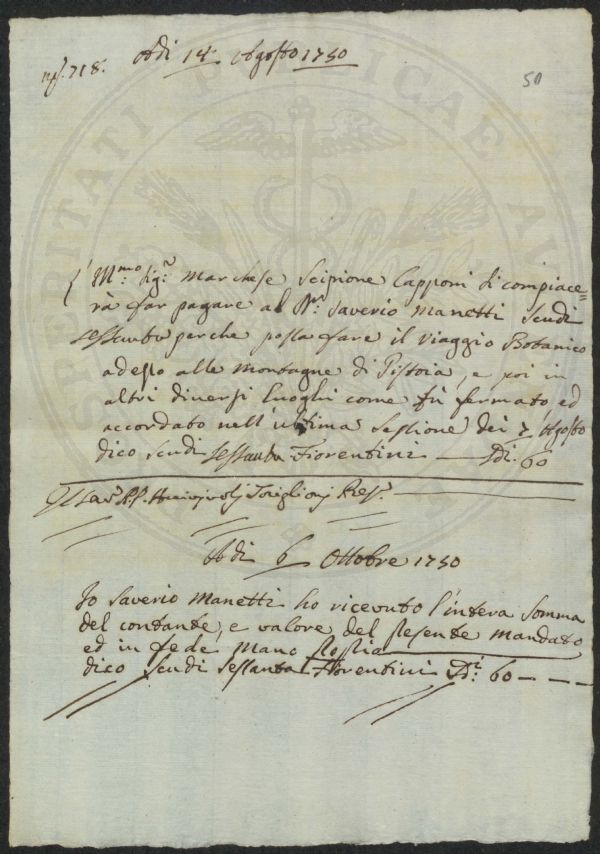 Adi 14 Agosto 1750
nº. 718.
50
L' Ill.mo Sig.r Marchese Scipione Capponi si compiace=
rà far pagare al Dr. Saverio Manetti Scudi
sessanta perche possa fare il viaggio Botanico
adesso alle Montagne di Pistoia, e poi in
altri diversi luoghi come fù fermato, ed
accordato nell'ultima Sessione dei 7 Agosto
dico scudi sessanta Fiorentini — Sdi. 60
Pres.
Adi 6 Ottobre 1750
Io Saverio Manetti ho ricevuto l'intera somma
del contante, e valore del presente mandato
ed in fede mano propria
dico scudi sessanta Fiorentini Sdi. 60 - - -
SPERITATI PUBLICAE AU